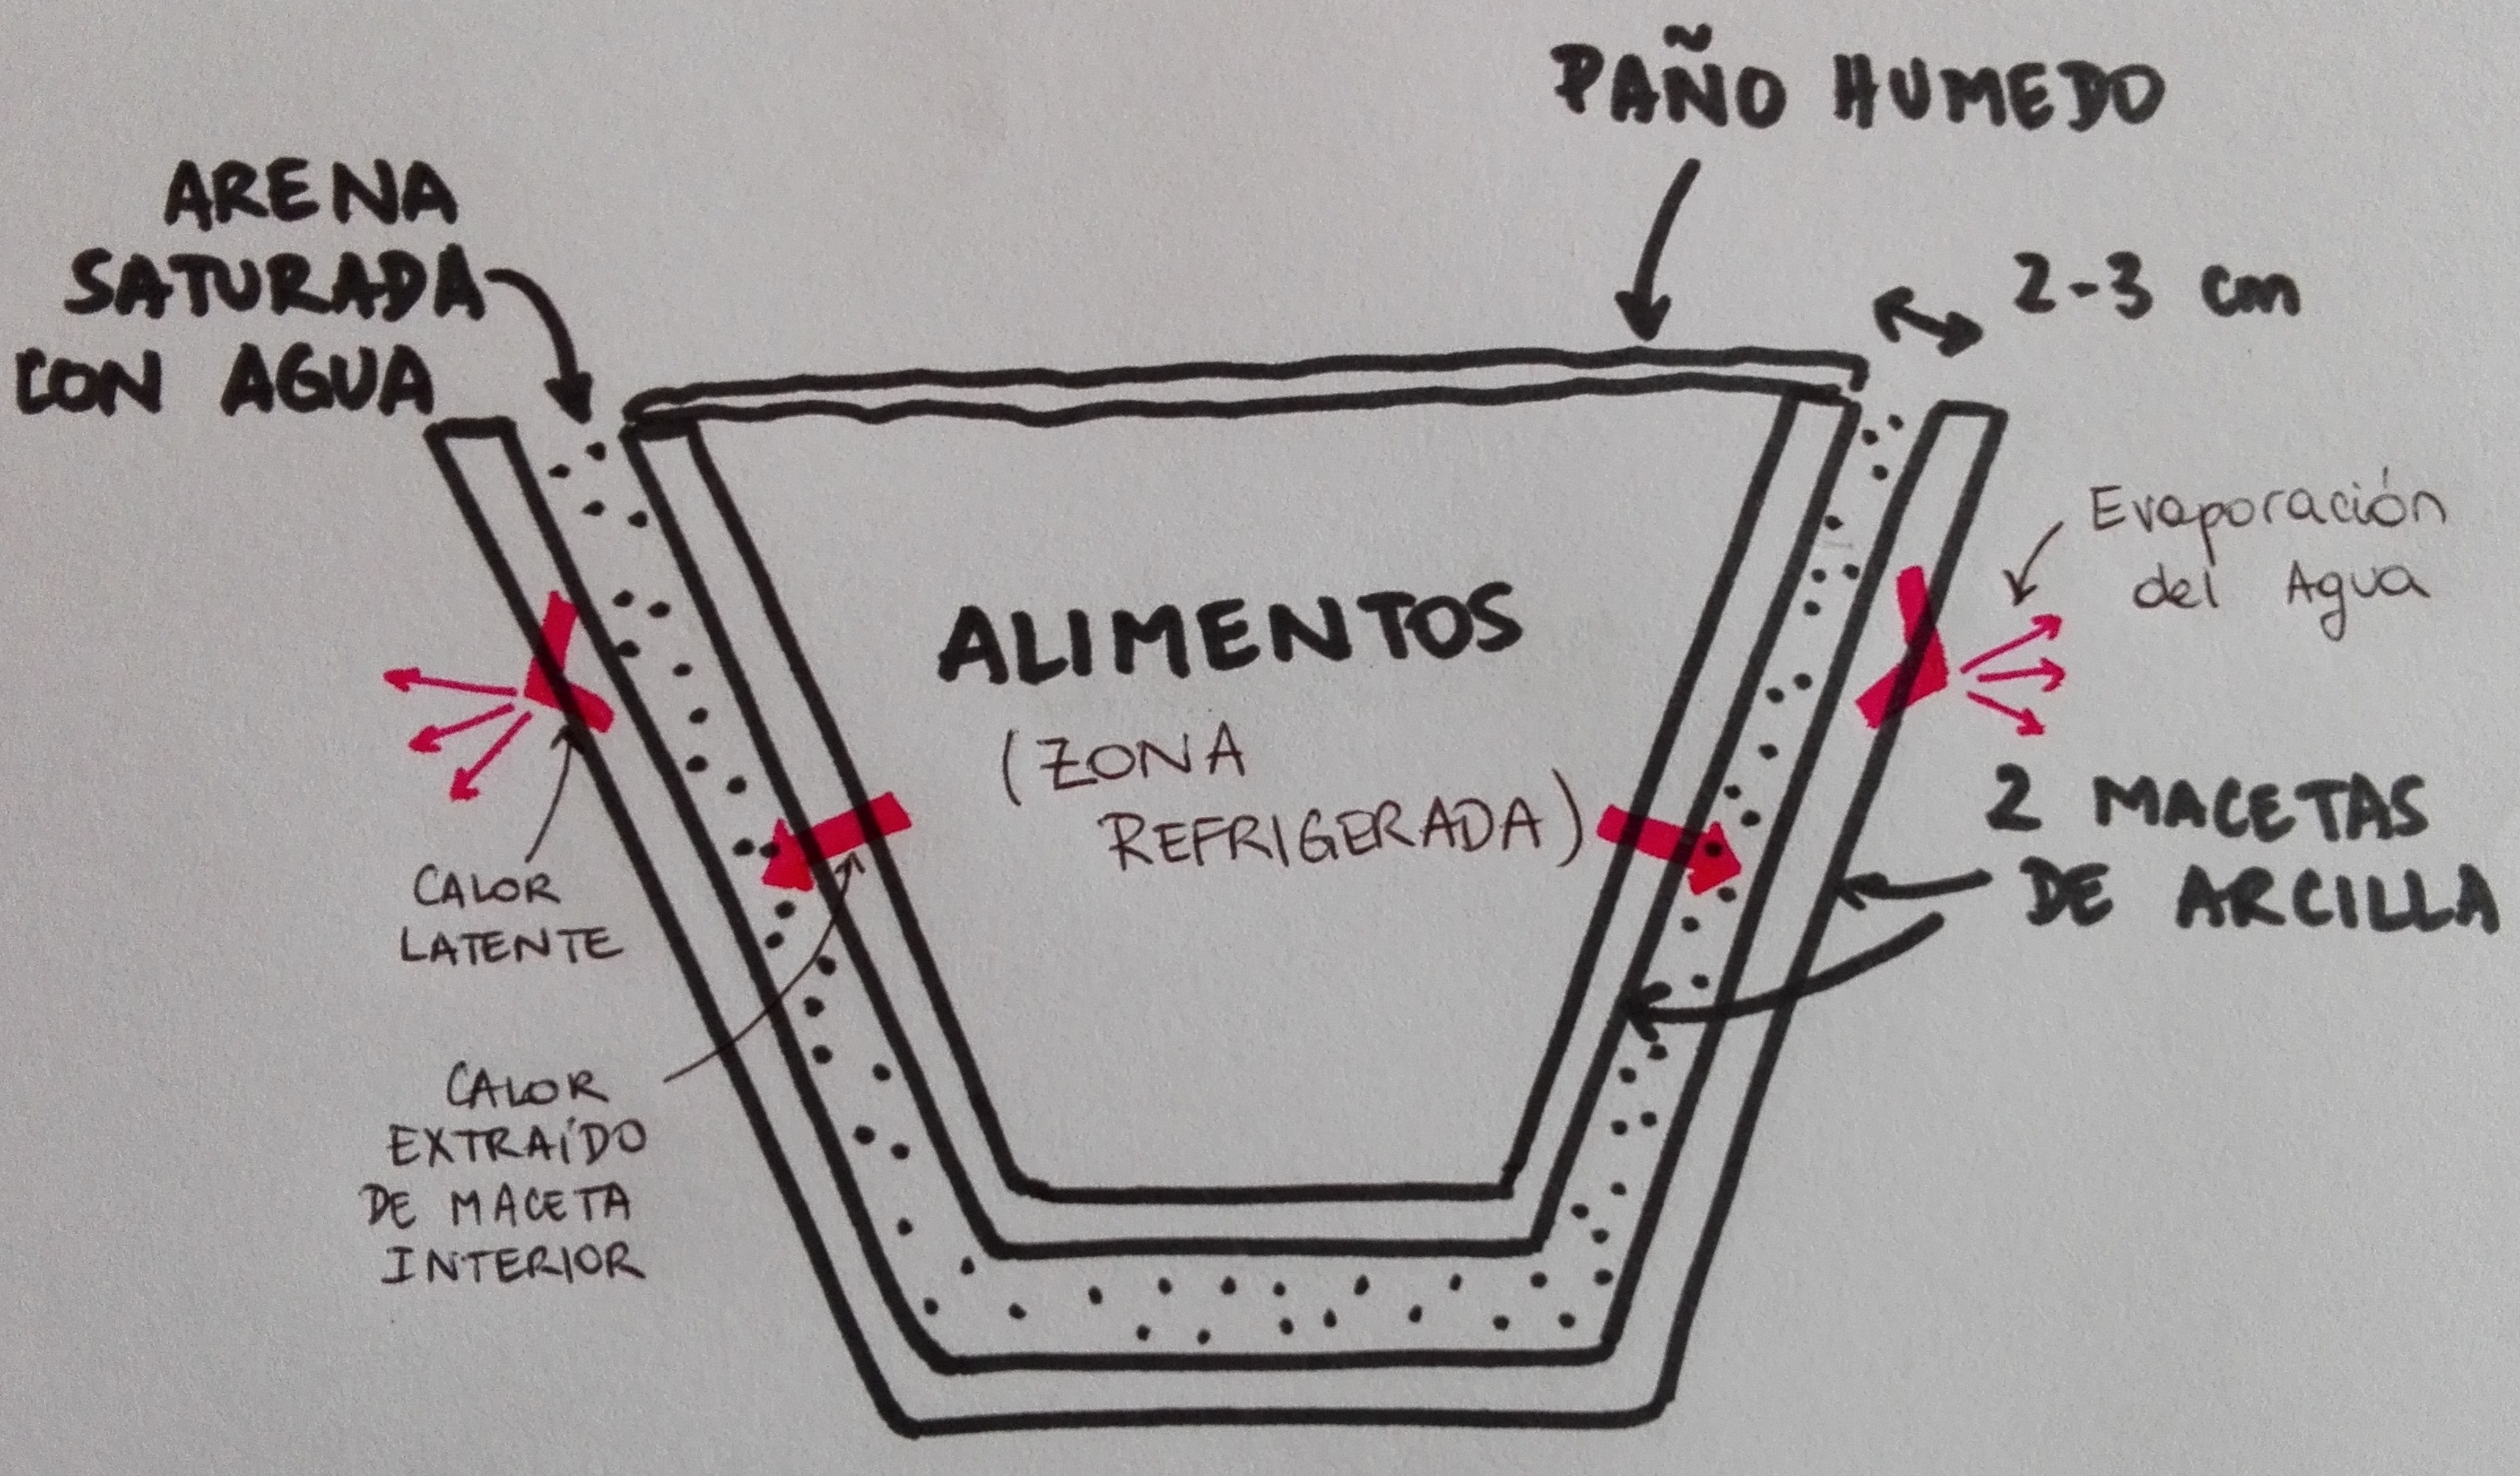 PAÑO HUMEDO
ARENA
SATURADA
CON AGUA
2-3 cm
Evaporación
del Agua
ALIMENTOS
(ZONA
REFRIGERADA)
2 MACETAS
DE ARCILLA
CALOR
LATENTE
CALOR
EXTRAÍDO
DE MACETA
INTERIOR